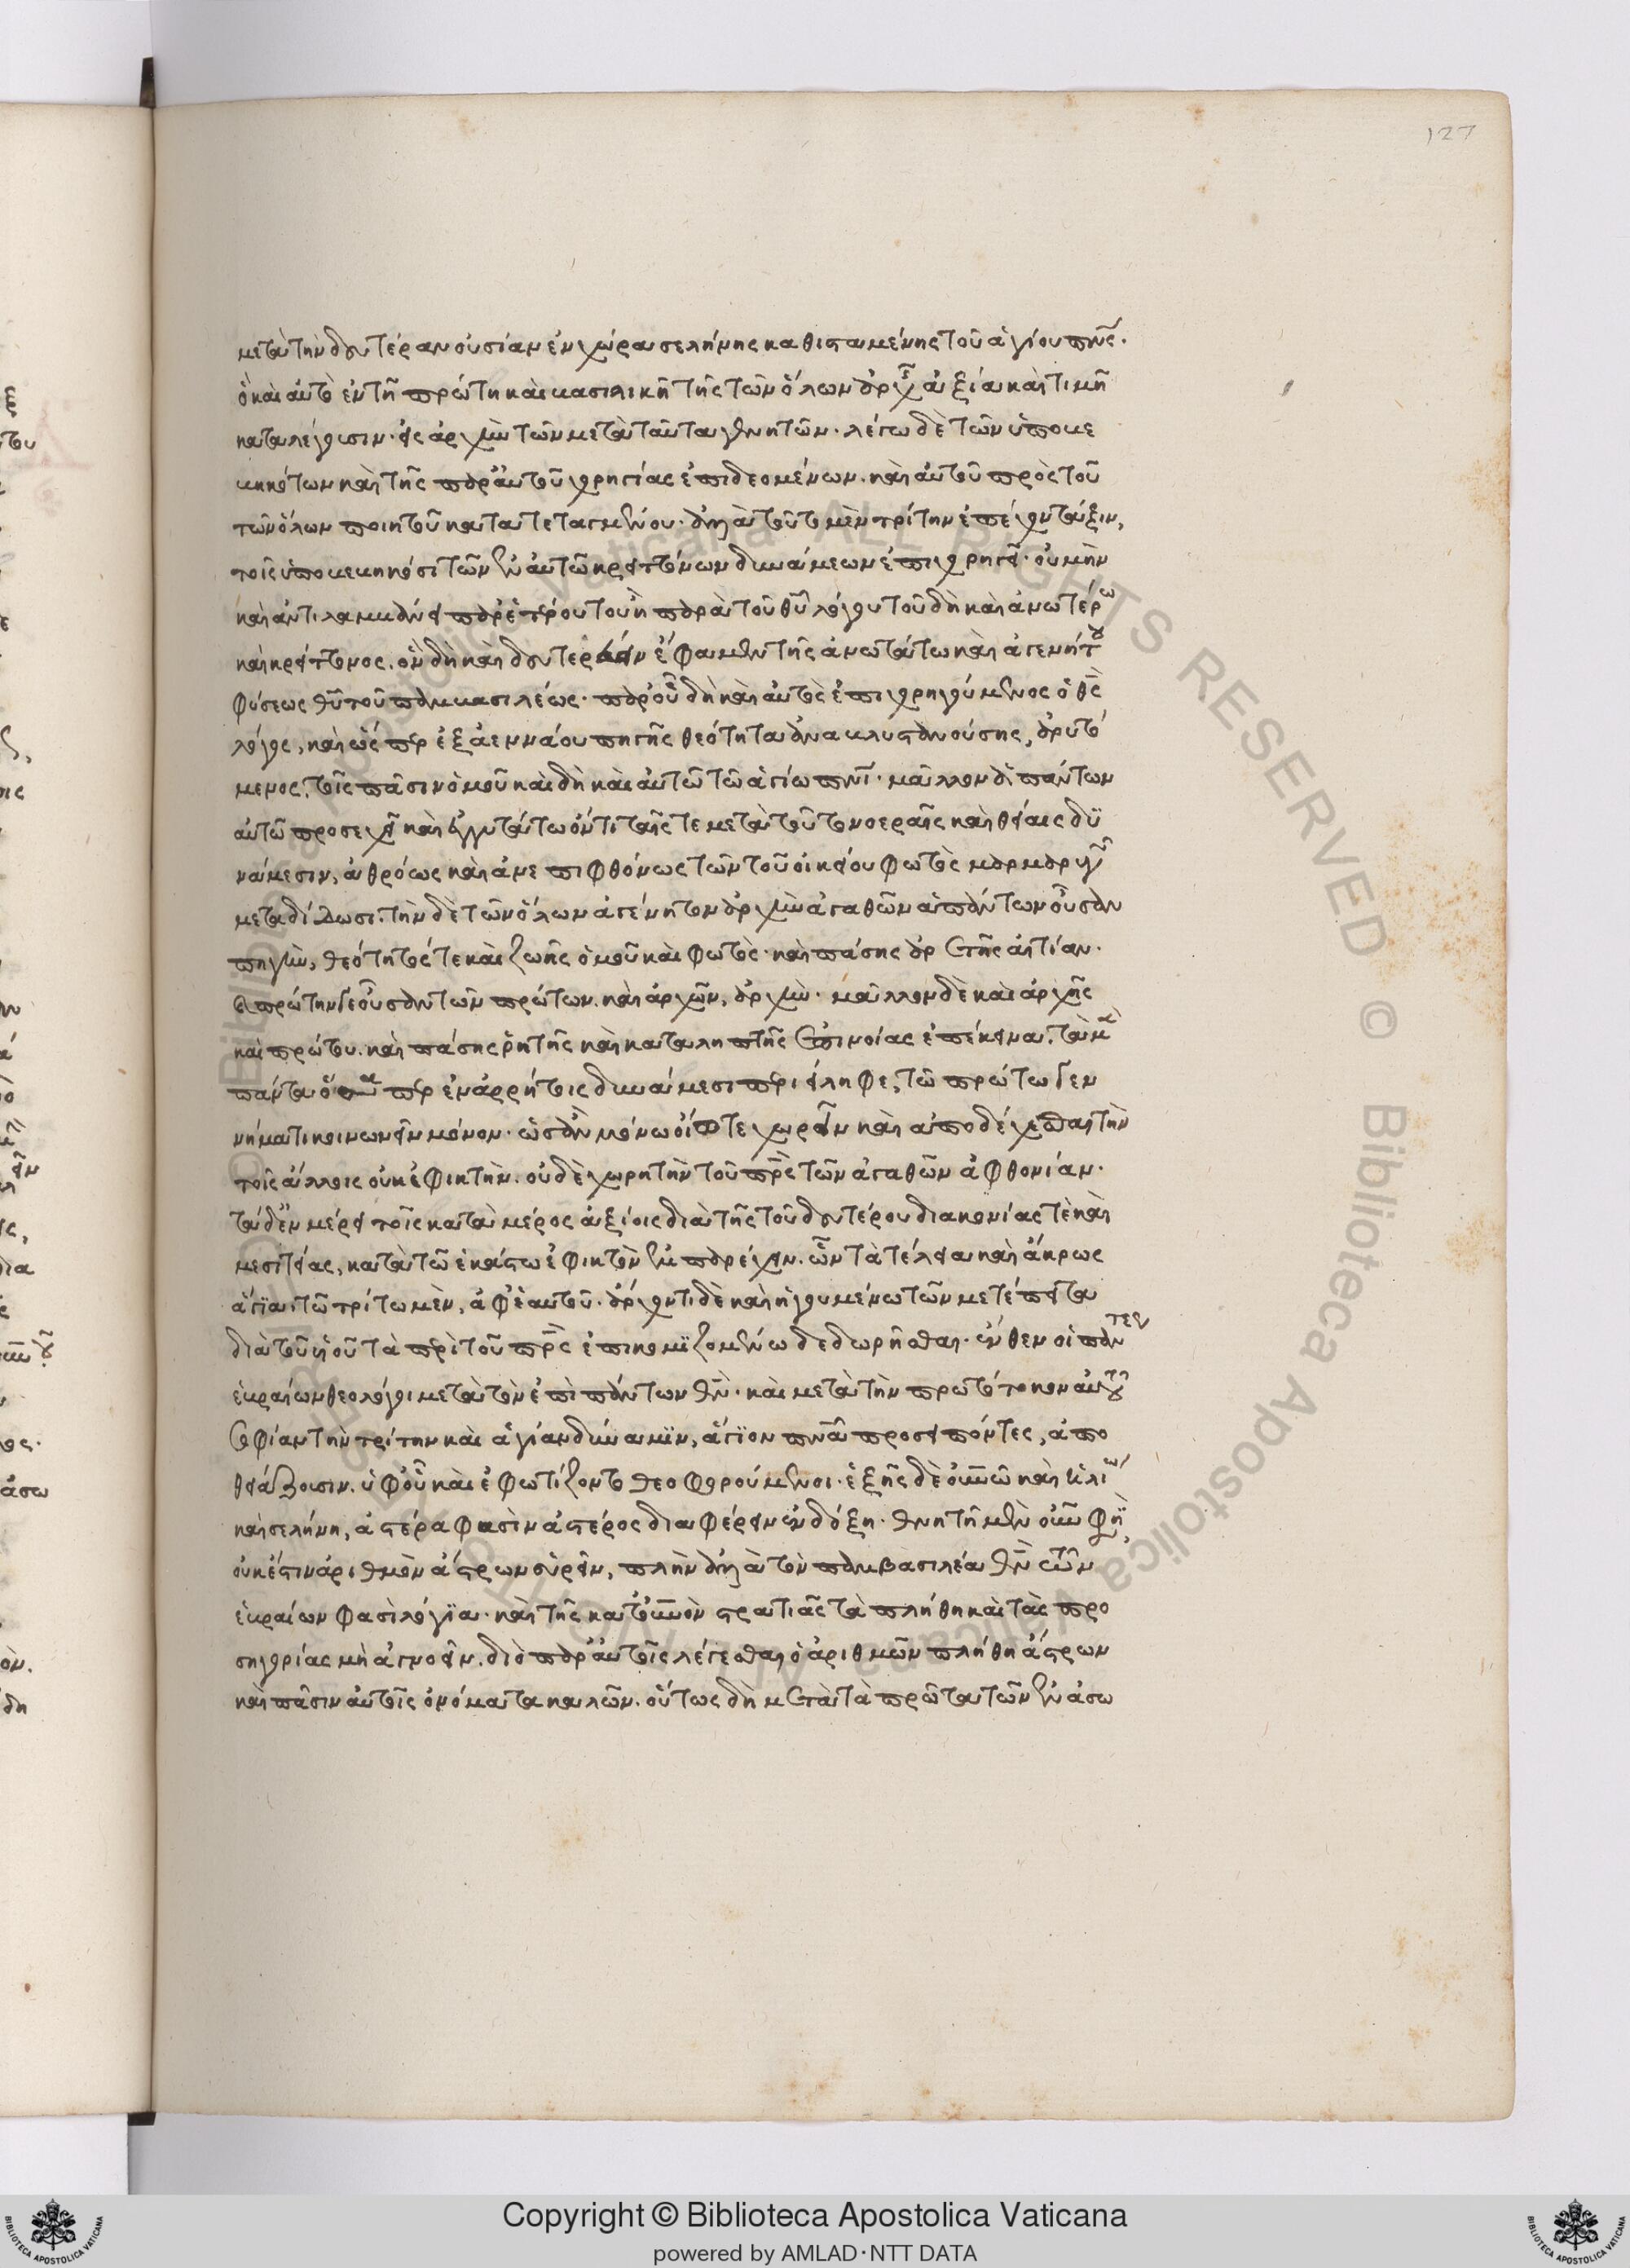 127
μετὰ τὴν δευτέραν οὐσίαν ἐν χώρα σελήνης καθισταμένης τοῦ ἁγίου πνς.
ὃ καὶ αὐτὸ ἐν τῆ πρώτη καὶ βασιλικῆ τῆς τῶν ὅλων ἀρχῆς ἀξία καὶ τιμῆ
καταλέγουσιν. εἰς ἀρχὴν τῶν μετὰ ταῦτα γενητῶν. λέγω δὲ τῶν ὑποβε
βηκότων καὶ τῆς παρ' αὐτοῦ χορηγίας ἐπιδεομένων. καὶ αὐτοῦ πρὸς τοῦ
τῶν ὅλων ποιητοῦ κατατεταγμένου. ἀλλὰ τοῦτο μὲν τρίτην ἐπέχον τάξιν,
τοῖς ὑποβεβηκόσι τῶν ἐν αὐτῶ κρειττόνων δυνάμεων ἐπιχορηγεῖ. οὐ μὴν
καὶ ἀντιλαμβάνει παρ' ἑτέρου του ἢ παρὰ τοῦ θῦ λόγου τοῦ δὴ καὶ ἀνωτέρω
καὶ κρείττονος. ὃν δὴ καὶ δευτερεύειν ἔφαμεν τῆς ἀνωτάτω καὶ ἀγενήτου
φύσεως θῦ τοῦ παμβασιλέως. παρ' οὗ δὴ καὶ αὐτὸς ἐπιχορηγούμενος ὁ θς
λόγος, καὶ ὥσπερ ἐξ ἀεννάου πηγῆς θεότητα ἀναβλυστανούσης, ἀρυτό
μενος, τοῖς πᾶσιν ὁμοῦ καὶ δὴ καὶ αὐτῶ τῶ ἁγίω πνι. μᾶλλον δὲ πάντων
αὐτῶ προσεχεῖ καὶ ἐγγυτάτω ὄντι ταῖς τε μετὰ τοῦτο νοεραῖς καὶ θείαις δυ
νάμεσιν, ἀθρόως καὶ ἀνεπιφθόνως τῶν τοῦ οἰκείου φωτὸς μαρμαρυγῶν
μεταδίδωσι. τὴν δὲ τῶν ὅλων ἀγένητον ἀρχὴν ἀγαθῶν ἁπάντων οὖσαν
πηγὴν, θεότητός τε καὶ ζωῆς ὁμοῦ καὶ φωτὸς. καὶ πάσης ἀρετῆς αἰτίαν.
πρώτην τε οὖσαν τῶν πρώτων. καὶ ἀρχῶν, ἀρχὴν. μᾶλλον δὲ καὶ ἀρχῆς
καὶ πρώτου. καὶ πάσης ῥητῆς καὶ καταληπτῆς ἐπινοίας ἐπέκεινα. τὰ μὲν
πάντα ὅσαπερ ἐν ἀρρήτοις δυνάμεσι περιείληφε, τῶ πρώτω γεν
νήματι κοινωνεῖν μόνον. ὡσὰν μόνω οἵω τε χωρεῖν καὶ ἀποδέχεσθαι τὴν
τοῖς ἄλλοις οὐκ ἐφικτὴν. οὐδὲ χωρητὴν τοῦ πρς τῶν ἀγαθῶν ἀφθονίαν.
τὰ δ' ἐν μέρει τοῖς κατὰ μέρος ἀξίοις διὰ τῆς τοῦ δευτέρου διακονίας τὲ καὶ
μεσιτείας, κατὰ τῶ ἑκάστω ἐφικτὸν ἦν παρέχειν. ὧν τὰ τέλεια καὶ ἄκρως
ἅγια τῶ τρίτω μὲν, ἀφ' ἑαυτοῦ. ἄρχοντι δὲ καὶ ἡγουμένω τῶν μετέπειτα
διὰ τοῦ υἱοῦ τὰ πρὶ τοῦ πρς ἐπικομιζομένω δεδωρῆσθαι. ἔνθεν οἱ πάντες
ἑβραίων θεολόγοι μετὰ τὸν ἐπὶ πάντων θν. καὶ μετὰ τὴν πρωτότοκον αὐτοῦ
σοφίαν τὴν τρίτην καὶ ἁγίαν δύναμιν, ἅγιον πνα προσειπόντες, ἀπο
θειάζουσιν. ὑφ' οὗ καὶ ἐφωτίζοντο θεοφορούμενοι. ἑξῆς δὲ οὐνῶ καὶ ἡλίω
καὶ σελήνη, ἀστέρα φασὶν ἀστέρος διαφέρειν ἐν δόξη. θνητῆ μὲν οὖν φύσει
οὐκ ἔστιν ἀριθμὸν ἄστρων εὑρεῖν, πλὴν ἀλλὰ τὸν παμβασιλέα θν τῶν
ἑβραίων φασὶ λόγια. καὶ τῆς κατ' οὐνὸν στρατιᾶς τὰ πλήθη καὶ τὰς προ
σηγορίας μὴ ἀγνοεῖν. διὸ παρ' αὐτοῖς λέγεσθαι ὁ ἀριθμῶν πλήθη ἄστρων
καὶ πᾶσιν αὐτοῖς ὀνόματα καλῶν. οὕτως δὴ μετὰ τὰ πρῶτα τῶν ἐν ἀσω